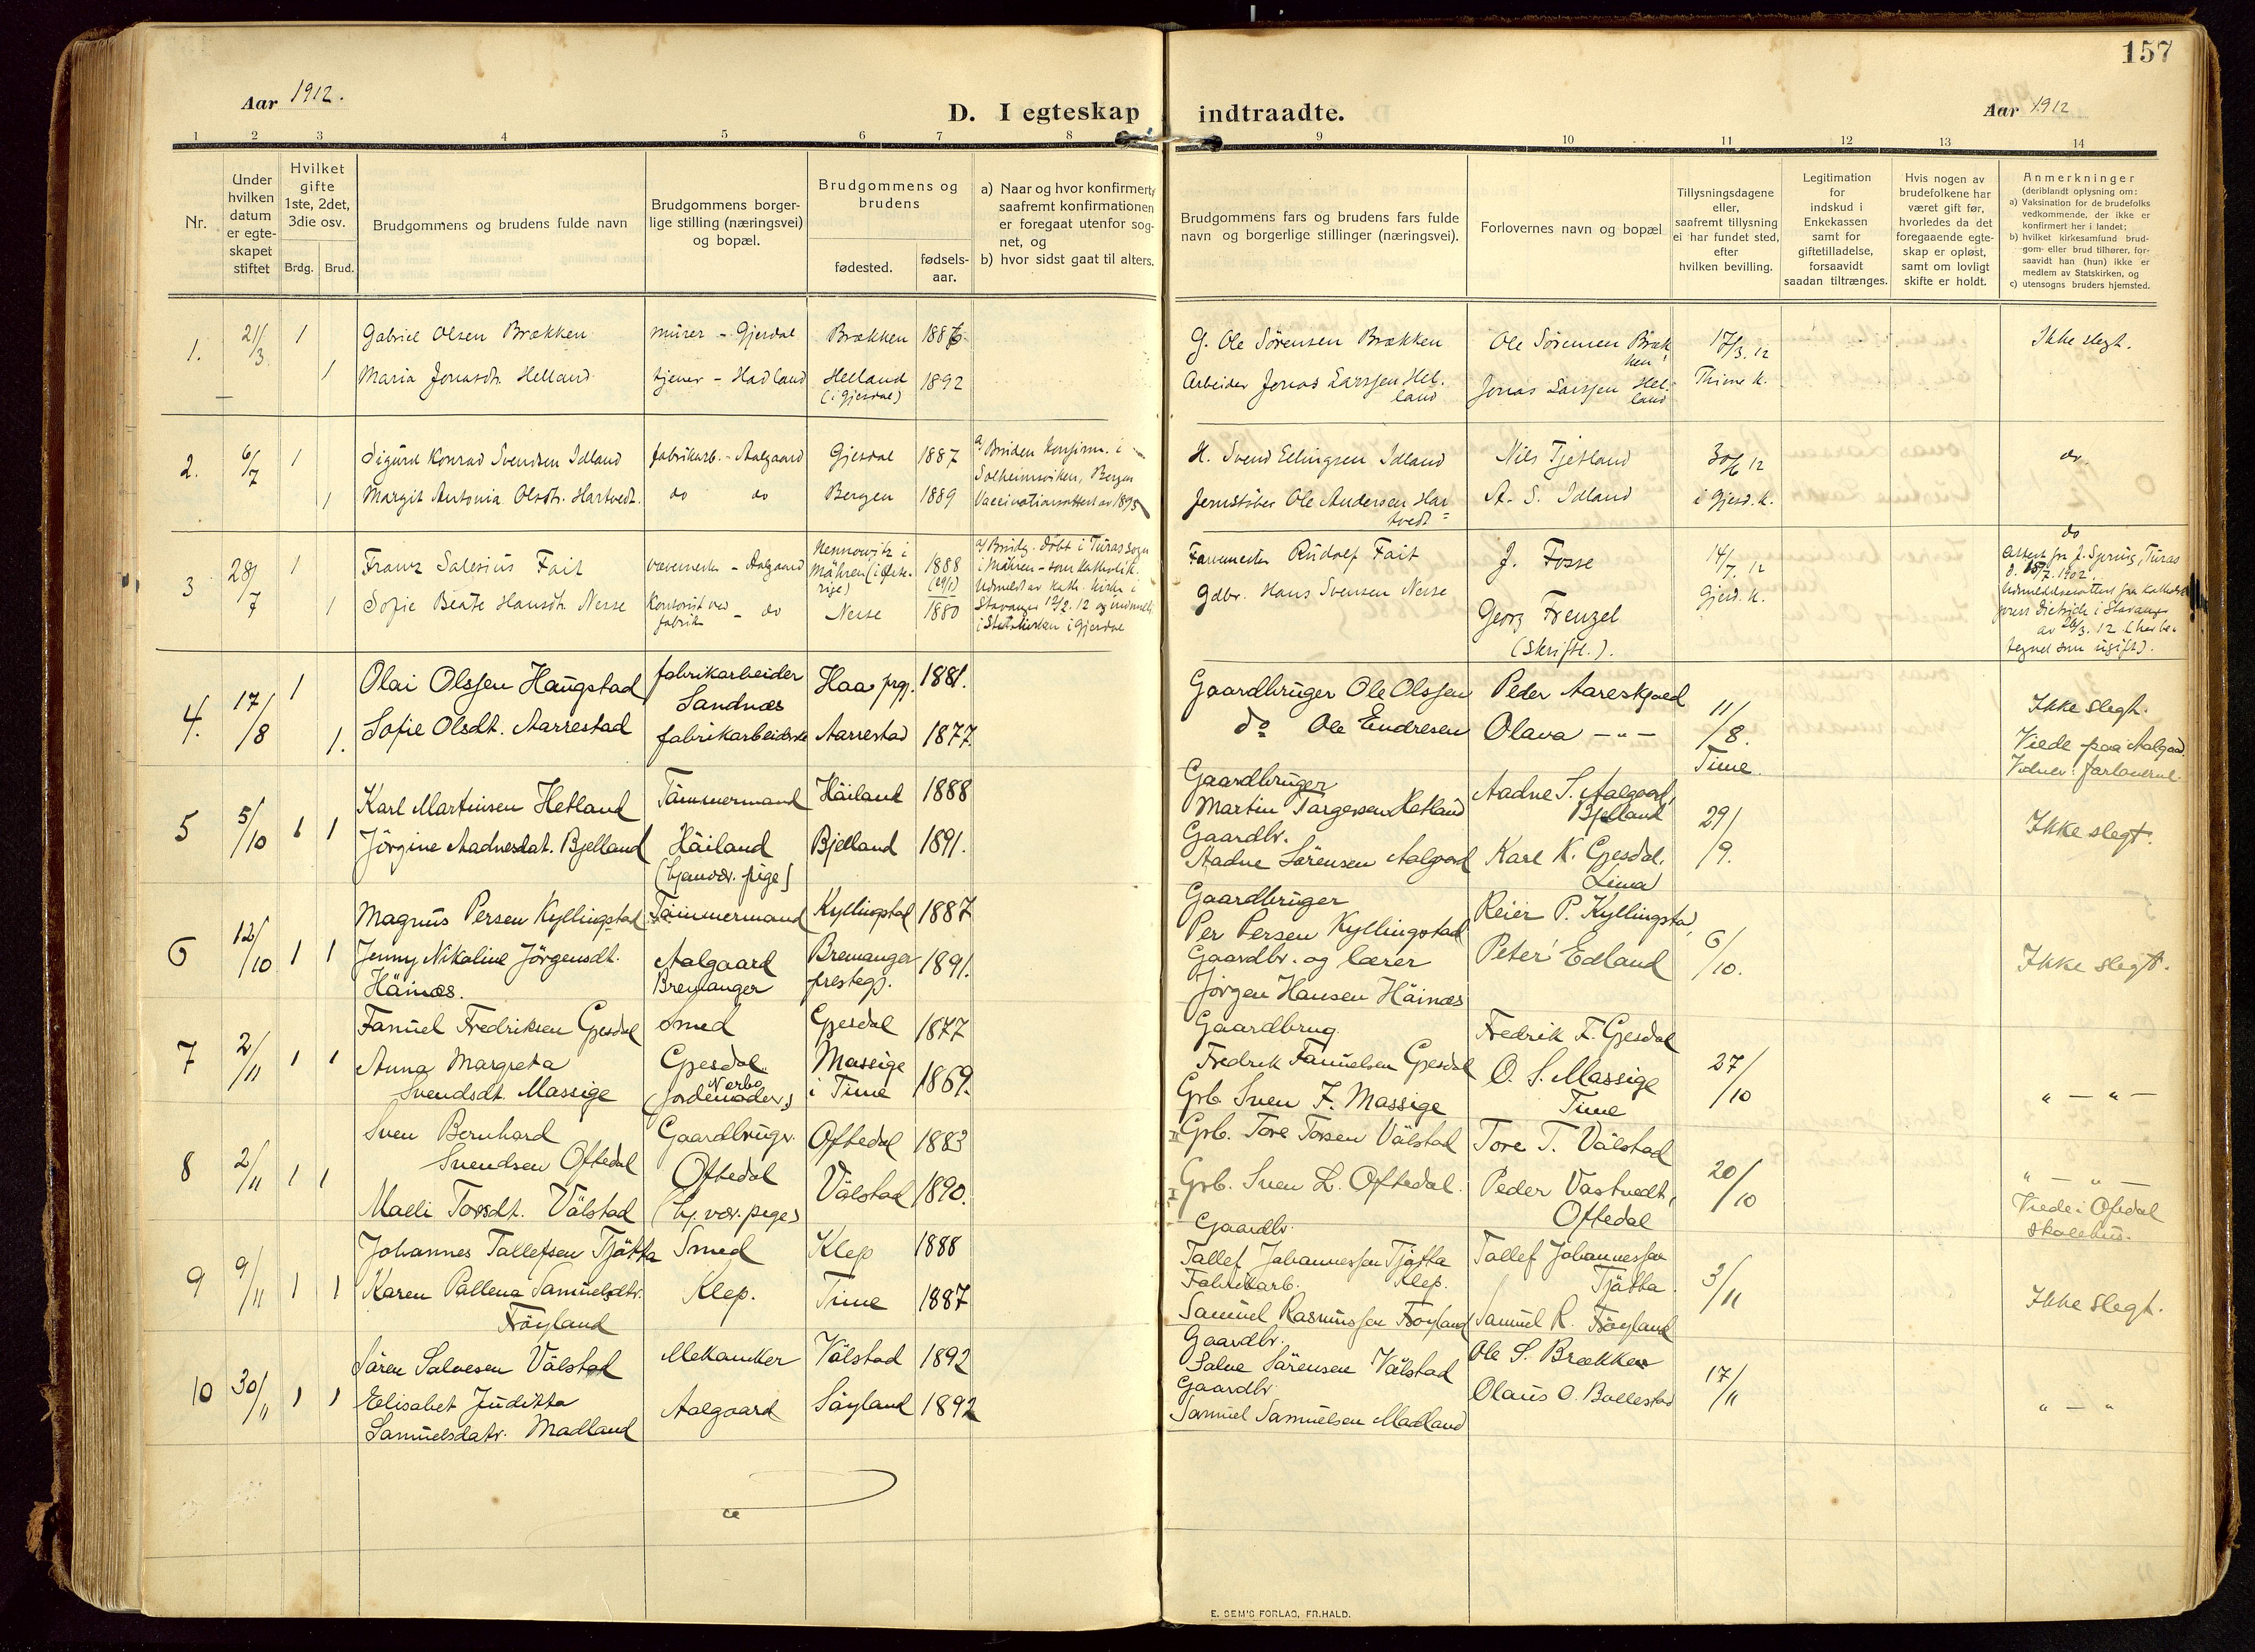 157
Aar 1912.
D. I egteskap indtraadte.
Aar 1912
1 2 3 4 5 6 7 8 9 10 11 12 13 14
Nr.
Under hvilken datum er egteskapet stiftet
Hvilket gifte 1ste, 2det, 3die osv.
Brdg. Brud.
Brudgommens og brudens fulde navn
Brudgommens borgerlige stilling (næringsvei) og bopæl.
Brudgommens og brudens
fødested.
fødselsaar.
a) Naar og hvor konfirmert, saafremt konfirmationen er foregaat utenfor sognet, og
b) hvor sidst gaat til alters.
Brudgommens fars og brudens fars fulde navn og borgerlige stillinger (næringsvei).
Forlovernes navn og bopæl
Tillysningsdagene eller, saafremt tillysning ei har fundet sted, efter hvilken bevilling.
Legitimation for indskud i Enkekassen samt for giftetilladelse, forsaavidt saadan tiltrænges.
Hvis nogen av brudefolkene har været gift før, hvorledes da det foregaaende egteskap er opløst, samt om lovligt skifte er holdt.
Anmerkninger
(deriblandt oplysning om:
a) Vaksination for de brudefolks vedkommende, der ikke er konfirmert her i landet;
b) hvilket kirkesamfund brudgom- eller brud tilhører, forsaavidt han (hun) ikke er medlem av Statskirken, og
c) utensogns bruders hjemsted.
1. 21/3 1 Gabriel Olsen Brækken murer - Gjesdal Brækken 1886 G. Ole Sørensen Brækken Ole Sørensen Brækken 17/3. 12 Ikke slegt.
1 Maria Jonasdtr. Helland tjener - Hadland Helland (i Gjesdal) 1892 Arbeider Jonas Larssen Helland Jonas Larssen Helland Thime k.
2. 6/7 1 Sigurd Konrad Svendsen Idland fabrikarb. - Aalgaard Gjesdal 1887 a/ Bruden konfirm. i H. Svend Ellingsen Idland Nils Tjetland 30/6 12 do.
Solheimsviken, Bergen
1 Margit Antonia Olsdtr. Hartvedt. do do Bergen 1889 Vaccinationsattest av 1895 Jernstøber Ole Andersen Hartvedt A. S. Idland i Gjesd. k.
3 28/7 1 Franz Salesius Fait vævemester - Aalgaard Mähren (i Østerige) 1888 (29/1) a/ Brudg. døbt i Turas sogn i Mähren - som katholik. Udmeldt av kath. kirke i Stavanger 12/2. 12 og indmeldt i Statskirken i Gjesdal Farvemester Rudolf Fait J. Fosse 14/7. 12 Gjesd. k. do
Attest fra Turas
1902.
Udmeldelsesattest fra katholsk prest i Stavanger
av 26/3. 12 (her betegnet som ugift).
1 Sofie Beate Hansdtr. Nesse Kontorist ved fabrik - do Nesse 1880 Gdbr. Hans Svensen Nesse Georg Frenzel (skriftl.).
4. 17/8 1 Olai Olssen Haugstad fabrikarbeider Sandnæs Haa prgj. 1881. Gaardbruger Ole Olssen Peder Aareskjold 11/8. Time. Ikke slegt.
1. Sofie Olsdt. Aarrestad fabrikarbeiderske Aarrestad 1877. do Ole Endresen Olava - " - Viede paa Aalgaard
Vidner: forloverne
5 5/10 1 1 Karl Martinsen Hetland Tømmermand Høiland 1888 Gaardbruger
Martin Torgersen Hetland Aadne S. Aalgaard, Bjelland 29/9. Ikke slegt.
Jørgine Aadnesdat. Bjelland Høiland (hjemvær. pige) Bjelland 1891. Gaardbr.
Aadne Sørensen Aalgaard Karl K. Gjesdal. Lima
6 12/10 1 1 Magnus Persen Kyllingstad Tømmermand Kyllingstad 1887 Gaardbruger
Per Persen Kyllingstad Reier P. Kyllingstad, 6/10. Ikke slegt.
Jenny Nikoline Jørgensdt. Høinæs. Aalgaard Bremanger Bremanger prestegj. 1891. Gaardbr. og lærer
Jørgen Hansen Høinæs Peter Edland
7 2/11 1 1 Fanuel Fredriksen Gjesdal Smed Gjesdal 1877 Gaardbrug.
Fredrik Fanuelsen Gjesdal Fredrik F. Gjesdal 27/10 " - " -
Anna Margreta Svendsdt. Massige Gjesdal. Nerbø (Jordemoder) Massige i Time 1869. Grb. Sven F. Massige O. S. Massige Time
8 2/11 1 1 Sven Bernhard Svendsen Oftedal Gaardbruger. Oftedal Oftedal 1883 II Grb. Tore Torsen Vølstad Tore T. Vølstad 20/10 " - " -
Malli Torsdt. Vølstad (hj. vær. pige) Vølstad 1890. I Grb. Sven L. Oftedal. Peder Vastvedt, Oftedal Viede i Oftedal skolehus.
9 9/11 1 1 Johannes Tallefsen Tjøtta Smed Klep 1888 Gaardbr.
Tallef Johannessen Tjøtta Klep. Tallef Johannessen Tjøtta. 3/11 Ikke slegt.
Karen Pallena Samuelsdtr. Frøyland Klep. Time 1887 Fabrikarb.
Samuel Rasmussen Frøyland Samuel R. Frøyland
10 30/11 1 1 Søren Salvesen Vølstad Mekaniker Vølstad 1892 Gaardbr.
Salve Sørensen Vølstad Ole S. Brækken 17/11 " - "
Elisabet Juditha Samuelsdatr. Madland Aalgaard Søyland 1892 Gaardbr
Samuel Samuelsen Madland Olaus O. Bollestad
E. SEM'S FORLAG, FR.HALD.